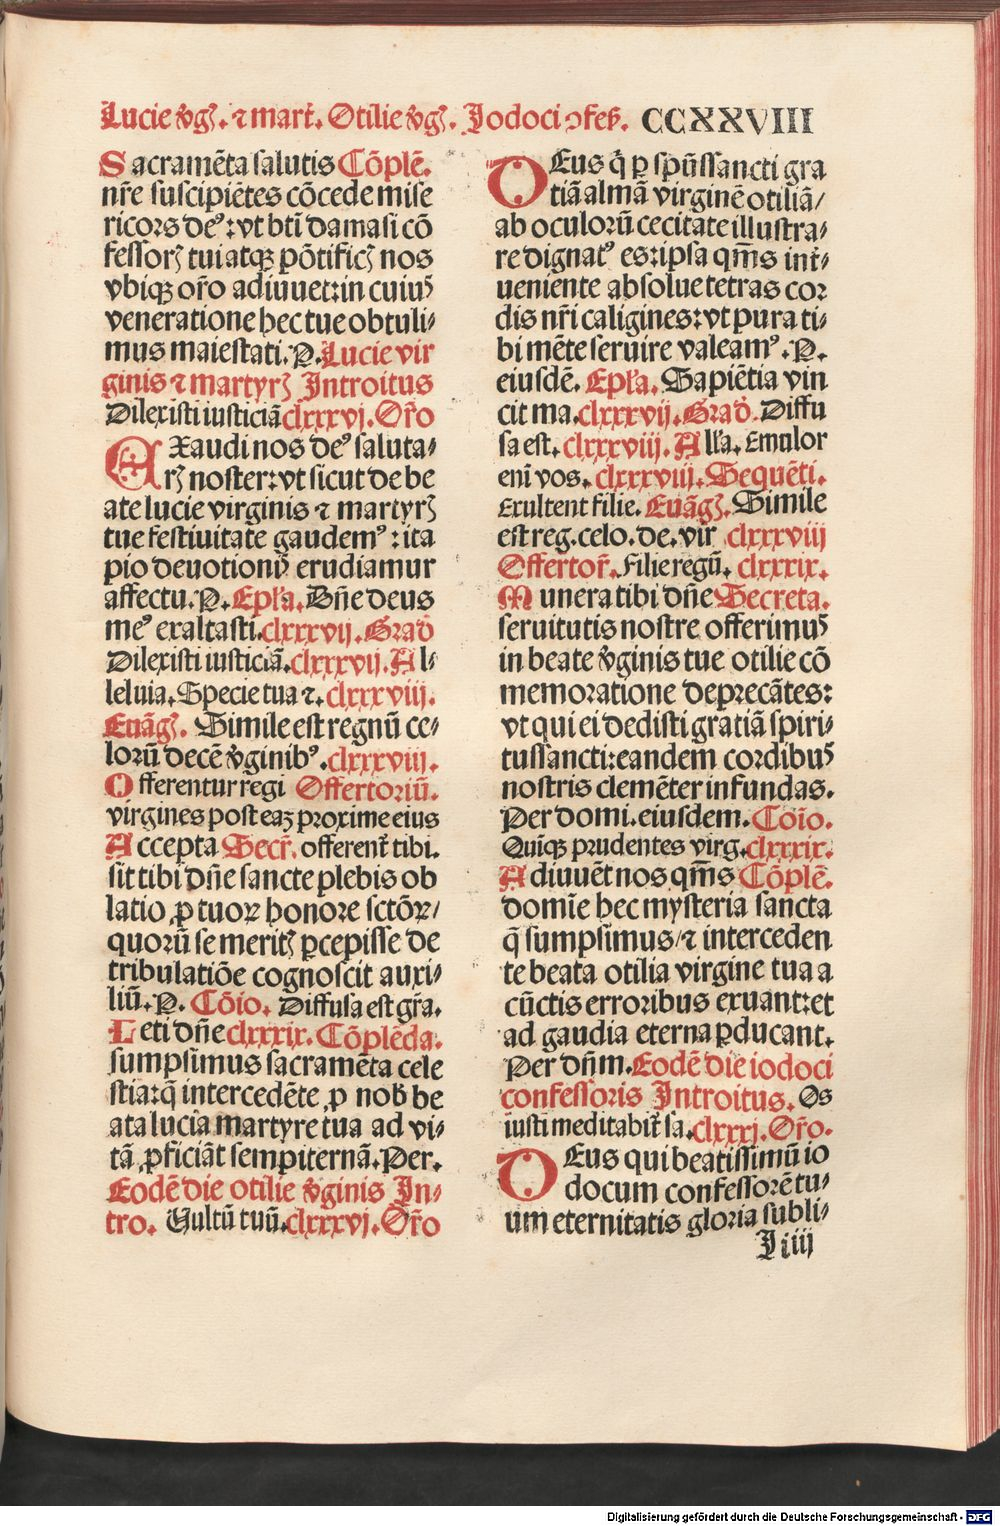 Lucie v̾gꝭ. ⁊ mart̄. Otilie v̾gꝭ. Jodoci ↄfeſſ. CCXXVIII
Sacramēta ſalutis Cōplē.
nr̄e ſuſcipiētes cōcede miſe
ricors deꝰ: vt btī damaſi cō
feſſorꝭ tui atqꝫ pōtificꝭ nos
vbiqꝫ or̄o adiuuet: in cuiuſ
veneratione hec tue obtuli⸗
mus maieſtati. P. Lucie vir
ginis ⁊ martyrꝭ Introitus
Dilexiſti iuſticiā clxxxvj. Or̄o
EXaudi nos deꝰ ſaluta⸗
rꝭ noſter: vt ſicut de be
ate lucie virginis ⁊ martyrꝭ
tue feſtiuitate gaudemꝰ: ita
pio deuotionꝭ erudiamur
affectu. P. Epl̄a. Dn̄e deus
meꝰ exaltaſti. clxxxvij. Grad̄
Dilexiſti iuſticiā. clxxxvij. Al⸗
leluia. Specie tua ⁊. clxxxviij.
Euāgꝭ. Simile eſt regnū ce⸗
lorū decē v̾ginibꝰ. clxxxviij.
Offerentur regi Offertoriū.
virgines poſt eaꝫ proxime eius
Accepta Secr̄. offerent̄ tibi.
ſit tibi dn̄e ſancte plebis ob
latio ꝓ tuoꝝ honore ſctōꝝ/
quorū ſe meritꝭ ꝑcepiſſe de
tribulatiōe cognoſcit auxi⸗
liū. P. Cōio. Diffuſa eſt gr̄a.
Leti dn̄e clxxxix. Cōplēda.
ſumpſimus ſacramēta cele
ſtia: q̄ intercedēte ꝓ nob̄ be
ata lucia martyre tua ad vi⸗
tā ꝓficiāt ſempiternā. Per.
Eodē die otilie v̾ginis In⸗
tro. Vultū tuū. clxxxvj. Or̄o
DEus q̇ ꝑ ſpūſſancti gra
tiā almā virginē otiliā/
ab oculorū cecitate illuſtra⸗
re dignatꝰ es: ipſa qm̄s int̄⸗
ueniente abſolue tetras cor
dis nr̄i caligines: vt pura ti⸗
bi mēte ſeruire valeamꝰ. P.
eiuſdē. Epl̄a. Sapiētia vin
cit ma. clxxxvij. Grad̄. Diffu
ſa eſt. clxxxviij. All̄a. Emulor
eni̅ vos. clxxxviij. Sequēti.
Exultent filie. Euāgꝭ. Simile
eſt reg. celo. de. vir clxxxviij
Offertor̄. Filie regū. clxxxix.
Munera tibi dn̄e Secreta.
ſeruitutis noſtre offerimuſ
in beate v̾ginis tue otilie cō
memoratione deprecātes:
vt qui ei dediſti gratiā ſpiri⸗
tuſſancti: eandem cordibuſ
noſtris clemēter infundas.
Per domi. eiuſdem. Cōio.
Quīqꝫ prudentes virg. clxxxix.
Adiuuēt nos qm̄s Cōplē.
domīe hec myſteria ſancta
q̄ ſumpſimus/ ⁊ interceden
te beata otilia virgine tua a
cūctis erroribus exuant: et
ad gaudia eterna ꝑducant.
Per dn̄m. Eodē die iodoci
confeſſoris Introitus. Os
iuſti meditabit̄ ſa. clxxxj. Or̄o.
DEus qui beatiſſimū io
docum confeſſorē tu⸗
um eternitatis gloria ſubli⸗
Jiiij
Digitalisierung gefördert durch die Deutsche Forschungsgemeinschaft - DFG